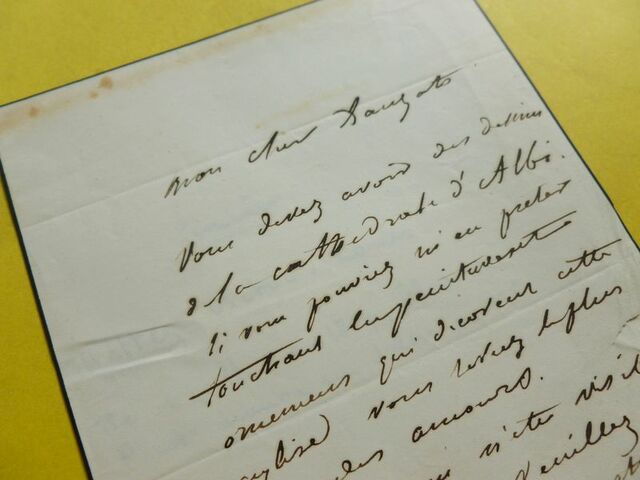 mon cher Dauzats
Vous devez avoir des dessins
de la cathedrale d'Albi.
Si vous pouviez m'en preter
touchant les peintures et
ornemens qui decorent cette
eglise) vous seriez le plus
des amours.
visi
Veuillez